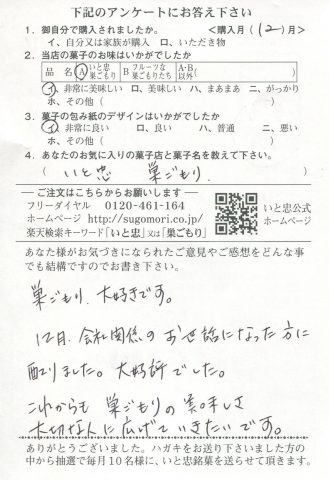 下記のアンケートにお答え下さい
1. 御自分で購入されましたか。 <購入月(12)月>
イ、自分又は家族が購入 ロ、いただき物
2. 当店の菓子のお味はいかがでしたか
品 名 A いと忠巣ごもり B フルーツな巣ごもりたち A・B、以外( )
イ、非常に美味しい ロ、美味しい ハ、まあまあ ニ、がっかり
ホ、その他( )
3. 菓子の包み紙のデザインはいかがでしたか
イ、非常に良い ロ、良い ハ、普通 ニ、悪い
ホ、その他( )
4. あなたのお気に入りの菓子店と菓子名を教えて下さい。
(いと忠 巣ごもり )
ご注文はこちらからお願いします
フリーダイヤル 0120-461-164
ホームページ http://sugomori.co.jp/
楽天検索キーワード「いと忠」又は「巣ごもり」
いと忠公式
ホームページ
あなた様がお気づきになられたご意見やご感想をどんな事
でも結構ですのでお書き下さい。
巣ごもり、大好きです。
12月、会社関係のお世話になった方に
配りました。大好評でした。
これからも巣ごもりの美味しさ
大切な人に広げていきたいです。
ありがとうございました。ハガキをお送り下さいました方の
中から抽選で毎月10名様に、いと忠銘菓を送らせて頂きます。